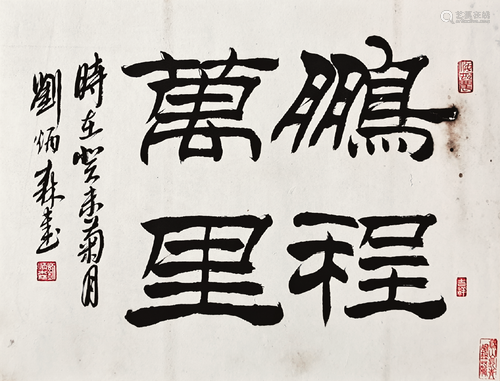 鵬程
萬里
時在癸未菊月
劉炳森書